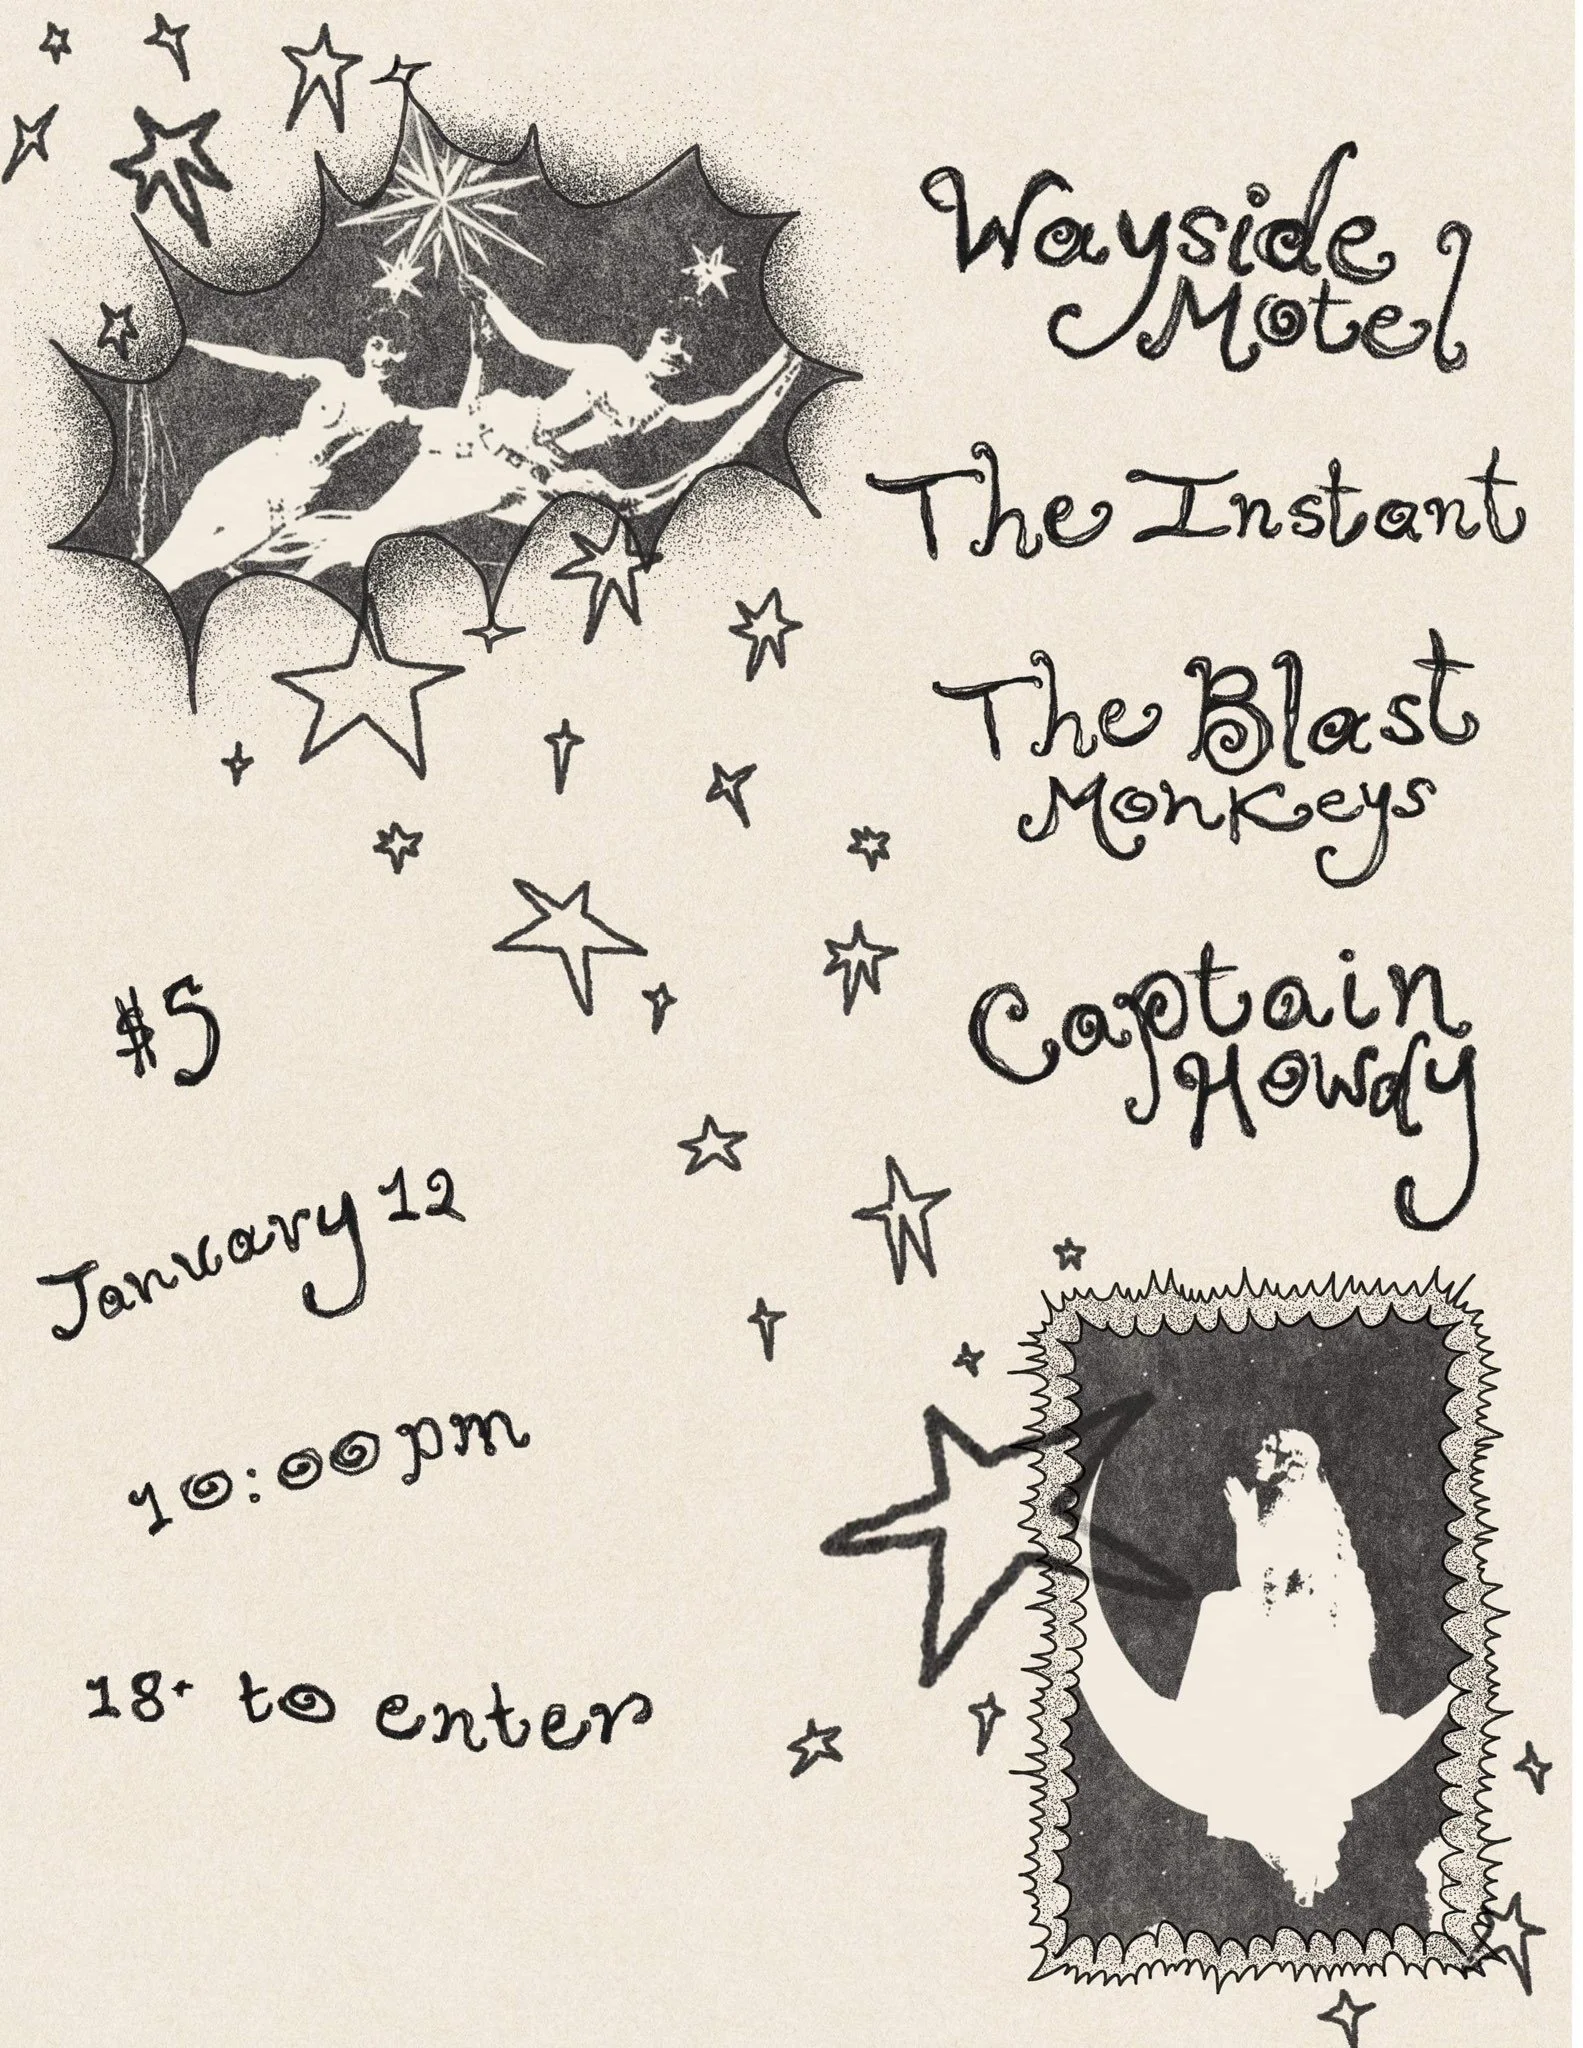 Wayside
Motel
The Instant
The Blast
Monkeys
Captain
Howdy
$5
January 12
10:00pm
18+ to enter